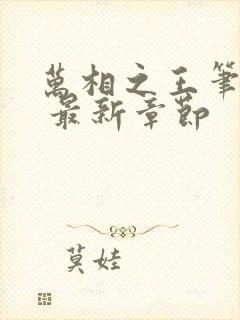 萬相之王筆
最新章節
莫娃